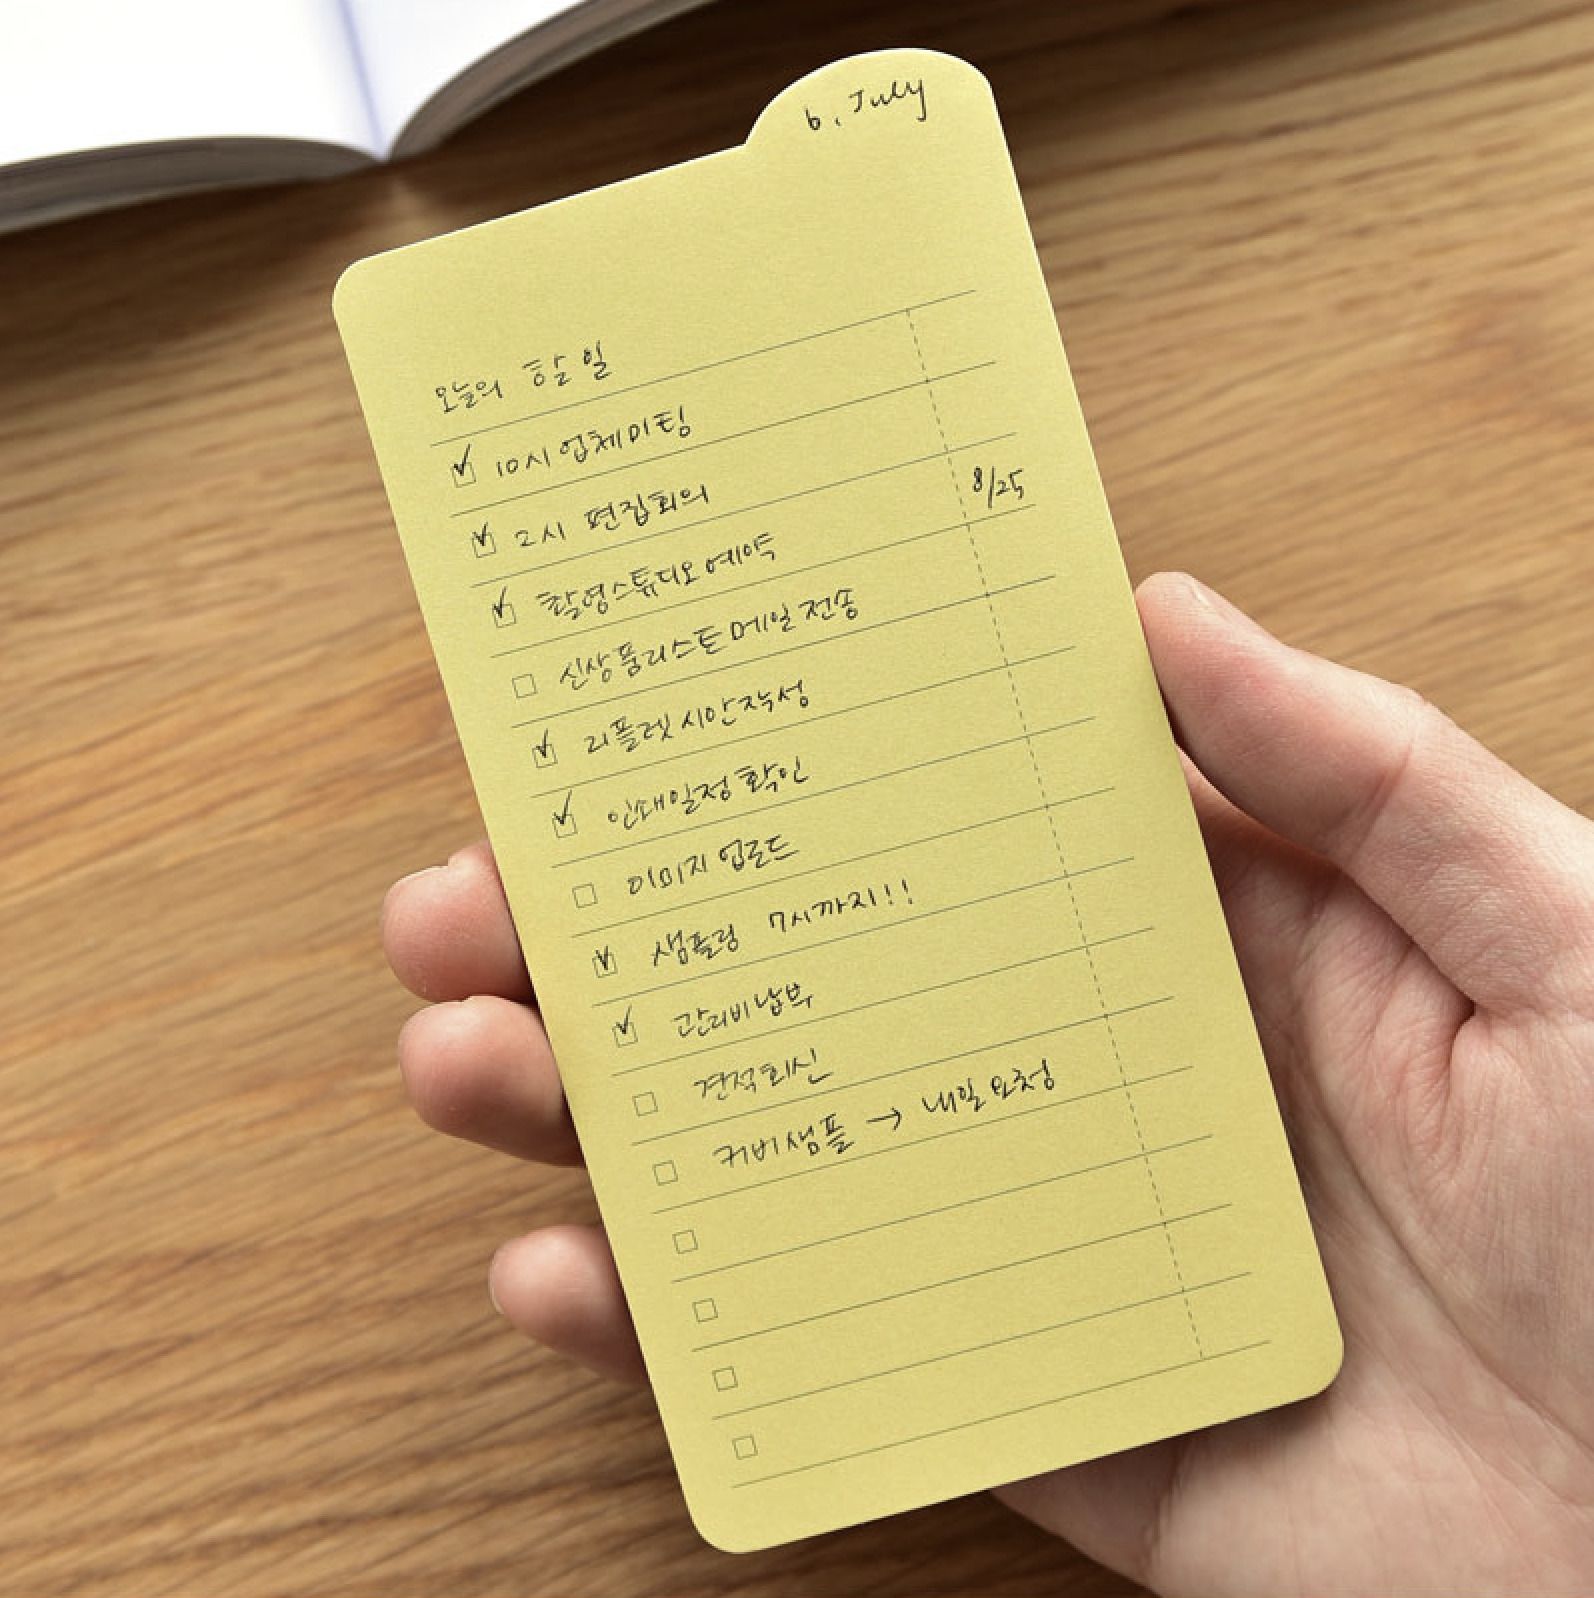 6. July
오늘의 할 일
10시 업체미팅
2시 편집회의
촬영스튜디오예약 8/25
신상품리스트 메일 전송
리플렛 시안작성
인쇄일정 확인
이미지 업로드
샘플링 7시까지!!
관리비납부
견적회신
커버샘플 → 내일 요청